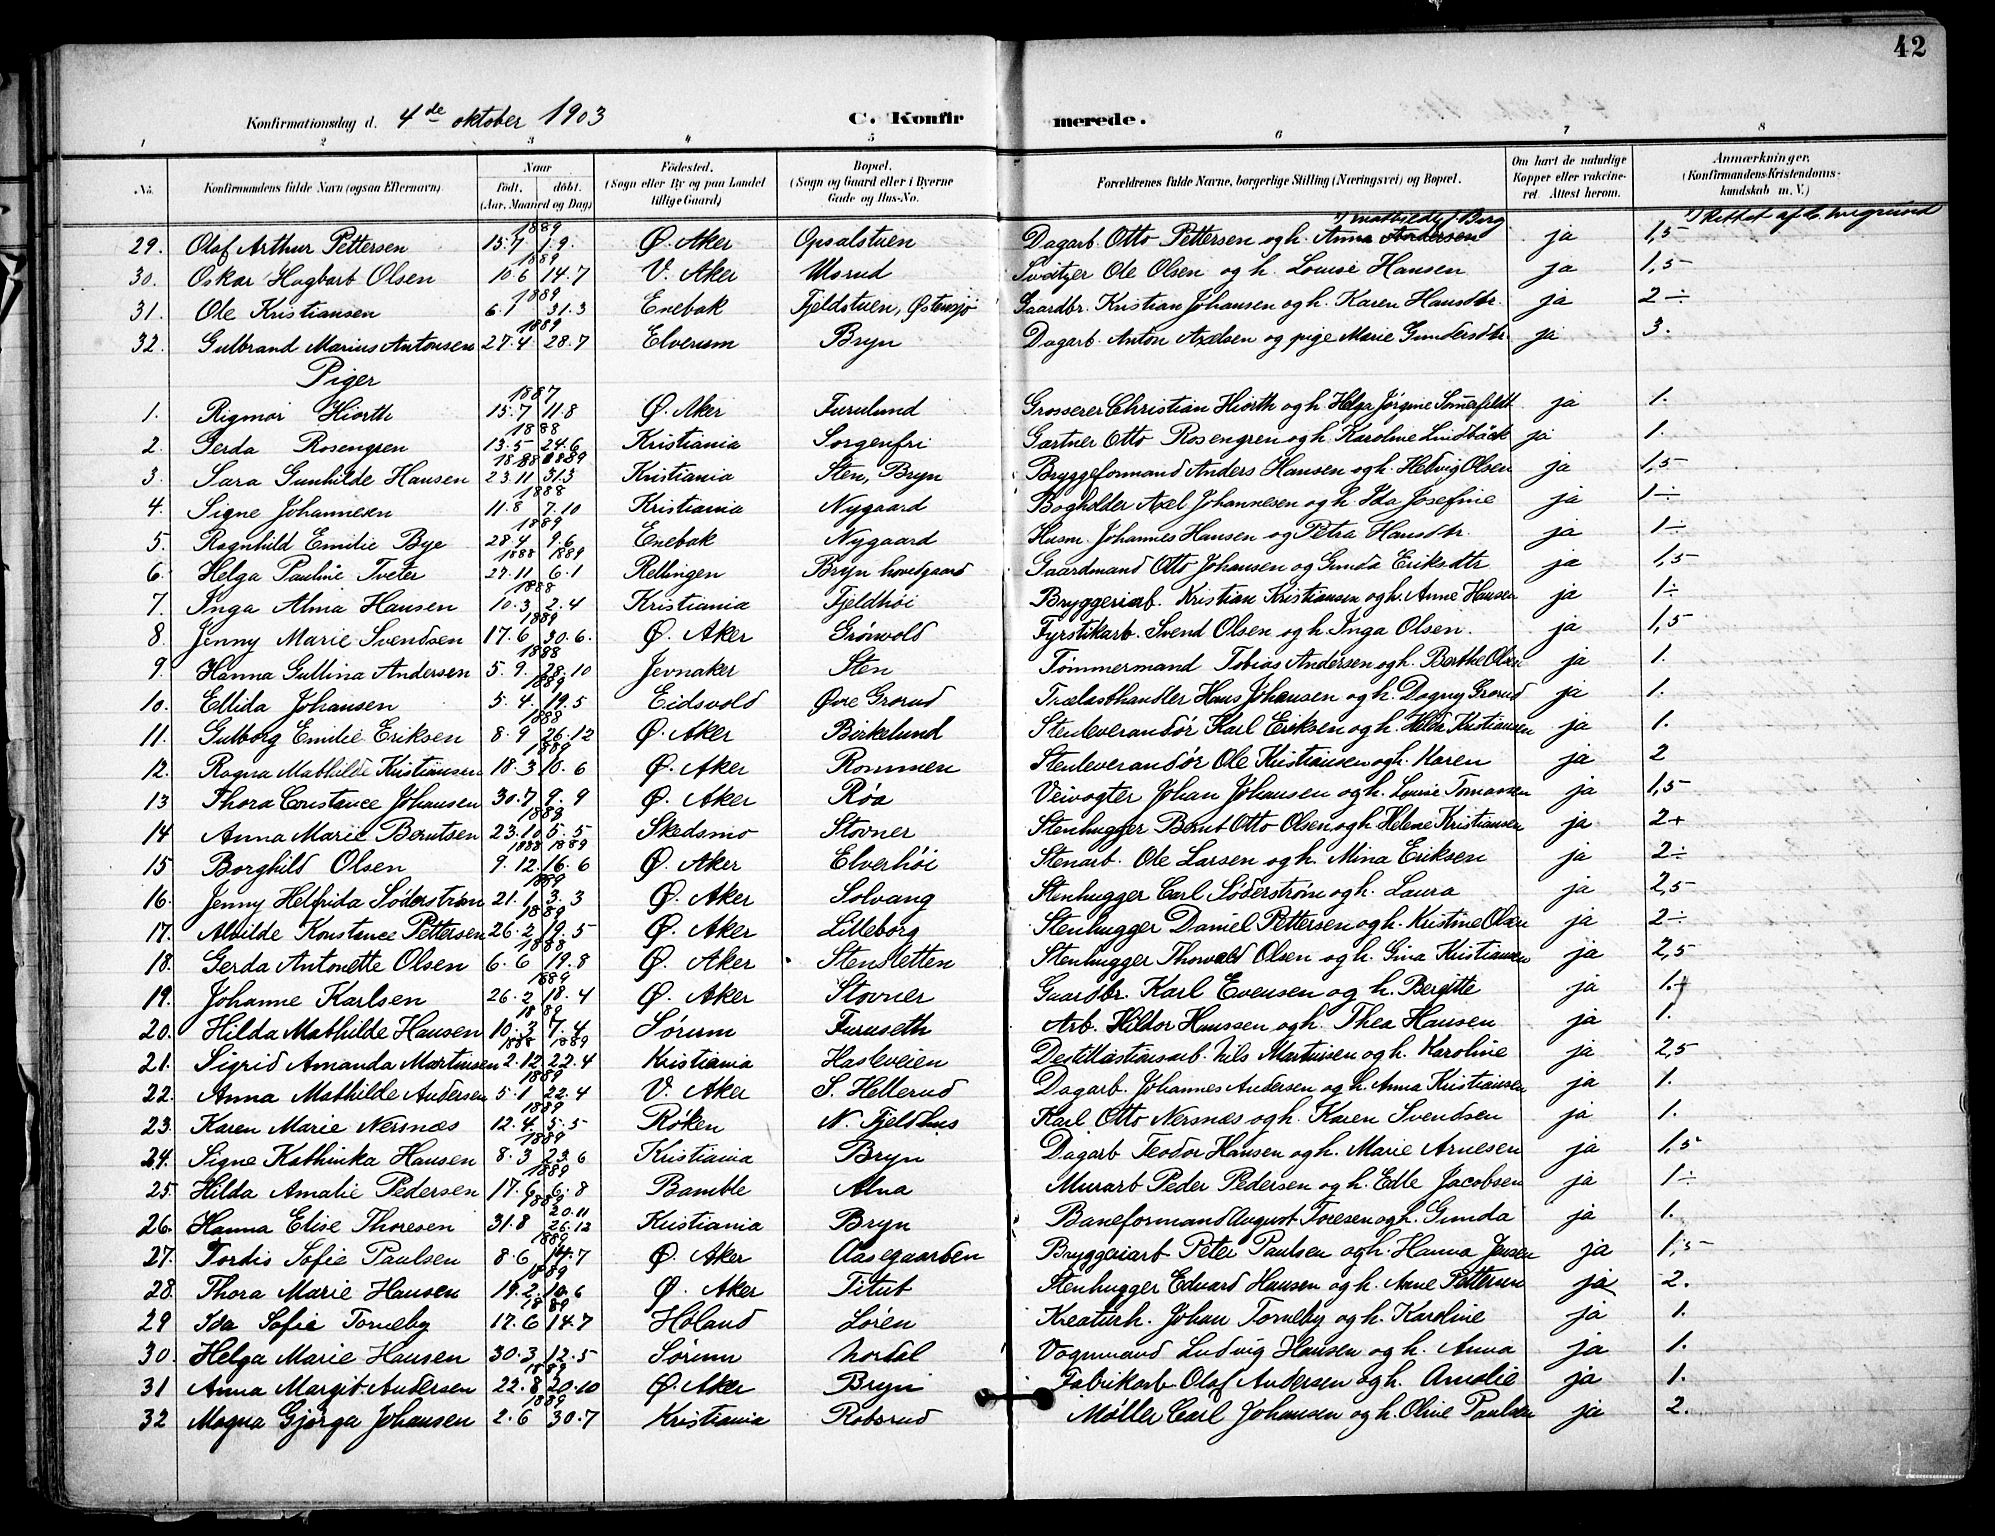 42
Konfirmationsdag d. 4de oktober 1903 C. Konfirmerede.
1 2 3 4 5 6 7 8
No. Konfirmandens fulde Navn (ogsaa Efternavn). Naar født, døbt. (Aar, Maaned og Dag) Födested. (Sogn eller By og paa Landet tillige Gaard) Bopæl. (Sogn og Gaard eller i Byerne Gade og Hus-No. Forældrenes fulde Navne, borgerlige Stilling (Næringsvei) og Bopæl. Om havt de naturlige Kopper eller vaccineret. Attest herom. Anmærkninger. (Konfirmandens Kristendomskundskab m. V.)
29. Olaf Arthur Pettersen 1889 15.7 1.9. Ø. Aker Opsalstuen Dagarb. Otto Pettersen og h. Anna Andersen Mathilde f. Berg ja 1,5 Rettet af
30. Oskar Hagbart Olsen 1889 10.6 14.7 V. Aker Ulsrud Sveitzer Ole Olsen og h. Louise Hansen ja 1,5
31. Ole Kristiansen 1889 6.1 31.3 Enebak Fjeldstuen, Østensjø Gaardbr. Kristian Johansen og h. Karen Hansdtr. ja 2÷
32. Gulbrand Marius Antonsen 1889 27.4 28.7 Elverum Bryn Dagarb. Anton Axelsen og pige Marie Gundersdtr. ja 3.
Piger
1. Rigmor Hiorth 1887 15.7 11.8 Ø. Aker Furulund Grosserer Christian Hiorth og h. Helga Jørgine Somerfeldt ja 1.
2. Gerda Rosengren 1888 13.5 24.6 Kristiania Sorgenfri Gartner Otto Rosengren og h. Karoline Lindbäck ja 1.
3. Sara Gunhilde Hansen 1888 1889 23.11 31.3 Kristiania Sten, Bryn Bryggeformand Anders Hansen og h. Hedvig Olsen ja 1,5
4. Signe Johannesen 1888 11.8 7.10 Kristiania Nygaard Bogholder Axel Johannesen og h. Ida Josefine ja 1÷
5. Ragnhild Emilie Bye 1889 28.4 9.6 Enebak Nygaard Husm. Johannes Hansen og Petra Hansdtr. ja 1÷
6. Helga Pauline Tveter 1888 1889 27.11 6.1 Rellingen Bryn hovedgaard Gaardmand Otto Johansen og Gunda Eriksdtr ja 1,5
7. Inga Alma Hansen 1888 10.3 2.4 Kristiania Fjeldhøi Bryggeriarb. Kristian Kristiansen og h. Anne Hansen ja 1÷
8. Jenny Marie Svendsen 1889 17.6 30.6. Ø. Aker Grønvold Fyrstikarb. Svend Olsen og h. Inga Olsen. ja 1,5
9. Hanna Gullina Andersen 1888 5.9. 28.10 Jevnaker Sten Tømmermand Tobias Andersen og h. Berthe Olsen ja 1.
10. Ellida Johansen 1889 5.4. 19.5 Eidsvold Øvre Grorud Trælasthandler Hans Johansen og h. Dagny Grorud ja 1.
11. Gulborg Emilie Eriksen 1888 8.9 26.12 Ø. Aker Birkelund Stenleverandør Karl Eriksen og h. Hilda Kristiansen ja 1.
12. Ragna Mathilde Kristiansen 1889 18.3 10.6 Ø. Aker Rommen Stenleverandør Ole Kristiansen og h. Karen ja 2
13 Thora Constance Johansen 30.7 9.9 Ø. Aker Røa Veivogter Johan Johansen og h. Louise Tomassen ja 1,5
14 Anna Marie Berntsen 1888 23.10 5.5 Skedsmo Stovner Stenhugger Bernt Otto Olsen og h. Helene Kristiansen ja 2+
15 Borghild Olsen 1888 1889 9.12. 16.6 Ø. Aker Elverhøi Stenarb. Ole Larsen og h. Mina Eriksen ja 2÷
16. Jenny Helfrida Söderstrøm 1889 21.1 3.3 Ø. Aker Solvang Stenhugger Carl Søderstrøm og h. Laura ja 2,5
17. Alvilde Konstance Pettersen 1889 26.2 19.5 Ø. Aker Lilleborg Stenhugger Daniel Pettersen og h. Kristine Olsen ja 2÷
18. Gerda Antonette Olsen 1888 6.6 19.8 Ø. Aker Stensletten Stenhugger Thorvald Olsen og h. Gina Kristiansen ja 2,5
19. Johanne Karlsen 1889 26.2 18.4 Ø. Aker Stovner Gaardbr. Karl Evensen og h. Bergitte ja 1.+
20. Hilda Mathilde Hansen 1889 10.3 7.4 Sørum Furuseth Arb. Hildor Hanssen og h. Thea Hansen ja 1.
21. Sigrid Amanda Martinsen 1888 1889 2.12 22.4 Kristiania Hasleveien Destillastionsarb. Nils Martinsen og h. Karoline ja 2,5
22. Anna Mathilde Andersen 1889 5.1 22.4 V. Aker S. Hellerud Dagarb. Johannes Andersen og h. Anna Kristiansen ja 1.
23. Karen Marie Nersnæs 1889 12.4. 5.5 Røken N. Fjeldhus Karl Otto Nersnæs og h. Karen Svendsen ja 1.
24. Signe Kathinka Hansen 1889 8.3 23.6 Kristiania Bryn Dagarb Teodor Hansen og h. Marie Arnesen ja 1,5
25. Hilda Amalie Pedersen 1889 17.6 6.8 Bamble Alna Murarb Peder Pedersen og h. Edle Jacobsen ja 1÷
26. Hanna Elise Thoresen 1889 31.8 20.11 26.12 Kristiania Bryn Baneformand August Toresen og h. Gunda ja 1.
27. Tordis Sofie Paulsen 1889 8.6 14.7 Ø. Aker Aasegaarden Bryggeriarb Peter Paulsen og h. Hanna Jensen ja 1,5
28. Thora Marie Hansen 1889 19.2. 10.6 Ø. Aker Titut Stenhugger Edvard Hansen og h. Anne Pettersen ja 2.
29 Ida Sofie Torneby 1889 17.6 14.7 Høland Løren Kreaturh. Johan Torneby og h. Karoline ja 1.
30. Helga Marie Hansen 30.3 12.5 Sørum Nordal Vognmand Ludvig Hansen og h. Anna ja 1.
31 Anna Margit Andersen 1889 22.8 20.10 Ø. Aker Bryn Fabrikarb. Olaf Andersen og h. Amalie ja 1.
32 Magna Gjørga Johansen 1889 2.6 30.7 Kristiania Robsrud Møller Carl Johansen og h. Oline Paulsen ja 2.